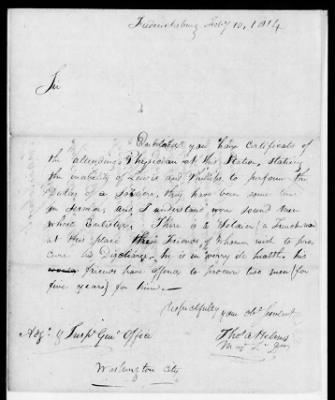 Fredericksburg Feby 10. 1814
Sir
Enclosed you have Certificate of
the attending Physician at this Station, stating
the inability of Lewis and Phillips to perform the
Duties of a Soldier, they have been some time
in Service, and I understand were sound Men
when Enlisted. There is a Soldier (a Frenchman)
at this place the Friends of whom wish to pro
cure his Discharge. he is in very de health, his
friends have offered to procure two men (for
five years) for him.—
Respectfully your obt. Servant
Adjt. & Inspr. Genl Office
Thos. A Helms
Washington City